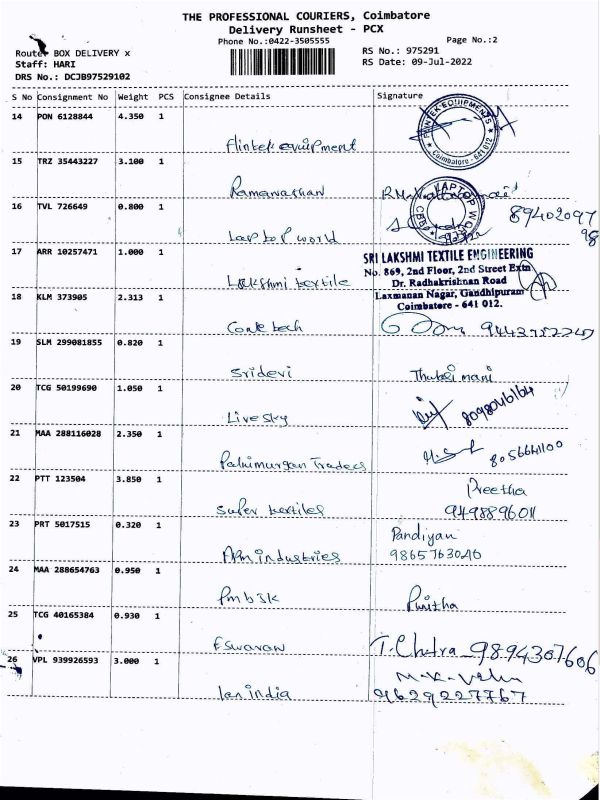 THE PROFESSIONAL COURIERS, Coimbatore
Delivery Runsheet - PCX
Phone No.:0422-3505555
Page No.:2
Route: BOX DELIVERY x
RS No.: 975291
Staff: HARI
RS Date: 09-Jul-2022
DRS No.: DCJB97529102
S No Consignment No Weight PCS Consignee Details Signature
14 PON 6128844 4.350 1
Flintek equipment
EQUIPMENTS Coimbatore - 641 012
15 TRZ 35443227 3.100 1
Ramanathan
16 TVL 726649 0.800 1
Laptop world
LAPTOP
89402097
98
17 ARR 10257471 1.000 1
Lakshmi textile
SRI LAKSHMI TEXTILE ENGINEERING
No. 869, 2nd Floor, 2nd Street Extn
Dr. Radhakrishnan Road
Laxmanan Nagar, Gandhipuram
Coimbatore - 641 012.
18 KLM 373905 2.313 1
19 SLM 299081855 0.820 1
Sridevi
Thulasi mani
20 TCG 50199690 1.050 1
Livesky
8098046164
21 MAA 288116028 2.350 1
Palnimurgan Traders
8056641100
22 PTT 123504 3.850 1
Super textiles
Preetha
9498896011
23 PRT 5017515 0.320 1
ARM industries
Pandiyan
9865763040
24 MAA 288654763 0.950 1
Pmbjk
Punitha
25 TCG 40165384 0.930 1
Eswaran
T. Chitra 9894307606
26 VPL 939926593 3.000 1
Ian india
M.K. Velu
9629227767